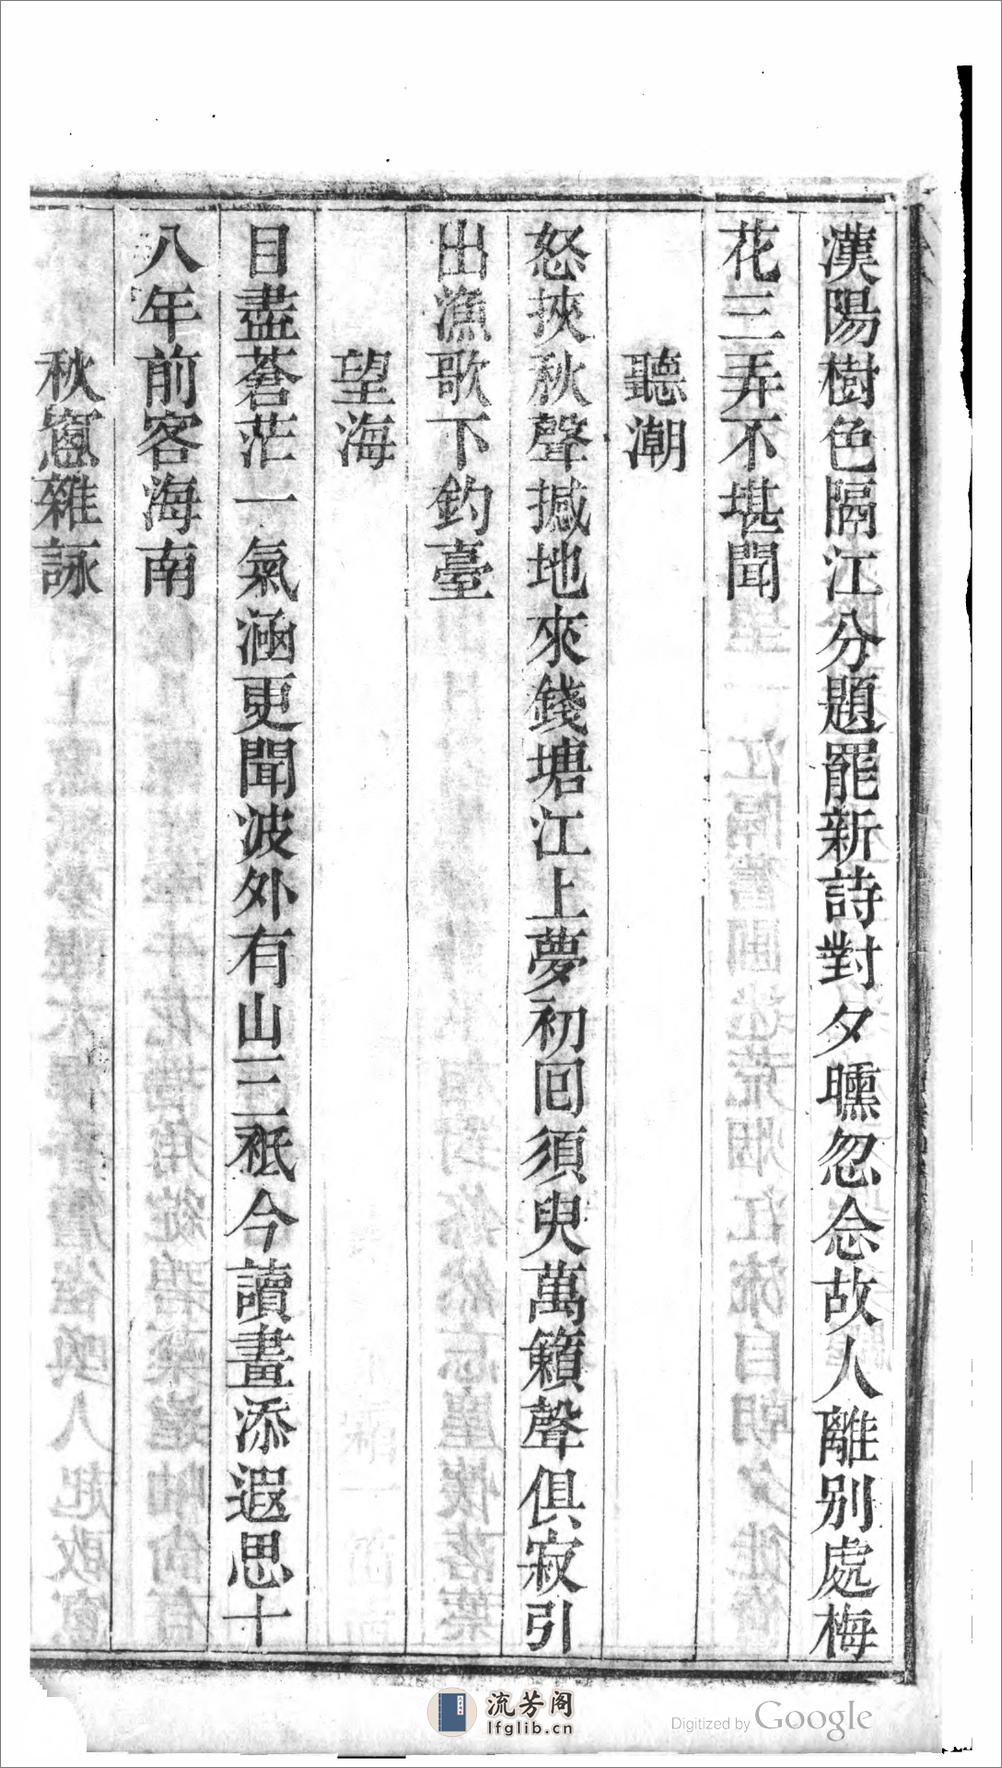 漢陽樹色隔江分題罷新詩對夕曛忽念故人離別處梅
花三弄不堪聞
聽潮
怒挾秋聲撼地來錢塘江上夢初回須臾萬籟聲俱寂引
出漁歌下釣臺
望海
目盡蒼茫一氣涵更聞波外有山三祇今讀畫添遐思十
八年前客海南
秋窻雜詠
流芳阁
lfglib.cn
Digitized by Google